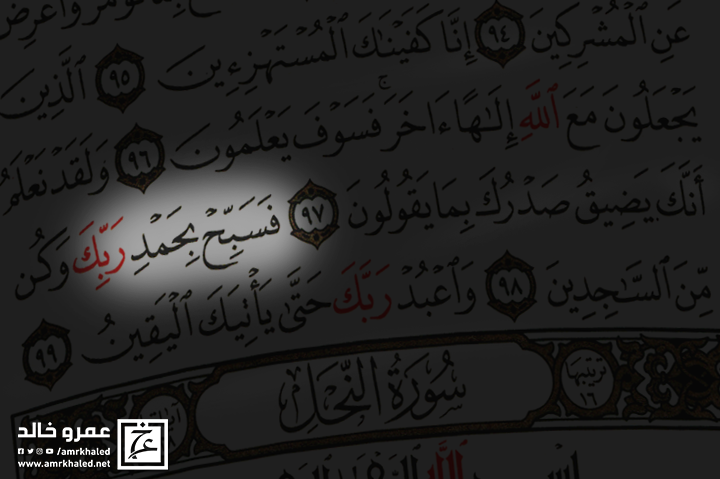 عَنِ ٱلْمُشْرِكِينَ ٩٤ إِنَّا كَفَيْنَٰكَ ٱلْمُسْتَهْزِءِينَ ٩٥ ٱلَّذِينَ
يَجْعَلُونَ مَعَ ٱللَّهِ إِلَٰهًا ءَاخَرَ ۚ فَسَوْفَ يَعْلَمُونَ ٩٦ وَلَقَدْ نَعْلَمُ
أَنَّكَ يَضِيقُ صَدْرُكَ بِمَا يَقُولُونَ ٩٧ فَسَبِّحْ بِحَمْدِ رَبِّكَ وَكُن
مِّنَ ٱلسَّٰجِدِينَ ٩٨ وَٱعْبُدْ رَبَّكَ حَتَّىٰ يَأْتِيَكَ ٱلْيَقِينُ ٩٩
سُورَةُ النَّحْلِ
ترتيبها ١٦
ٱللَّهِ
عمرو خالد
/amrkhaled
www.amrkhaled.net